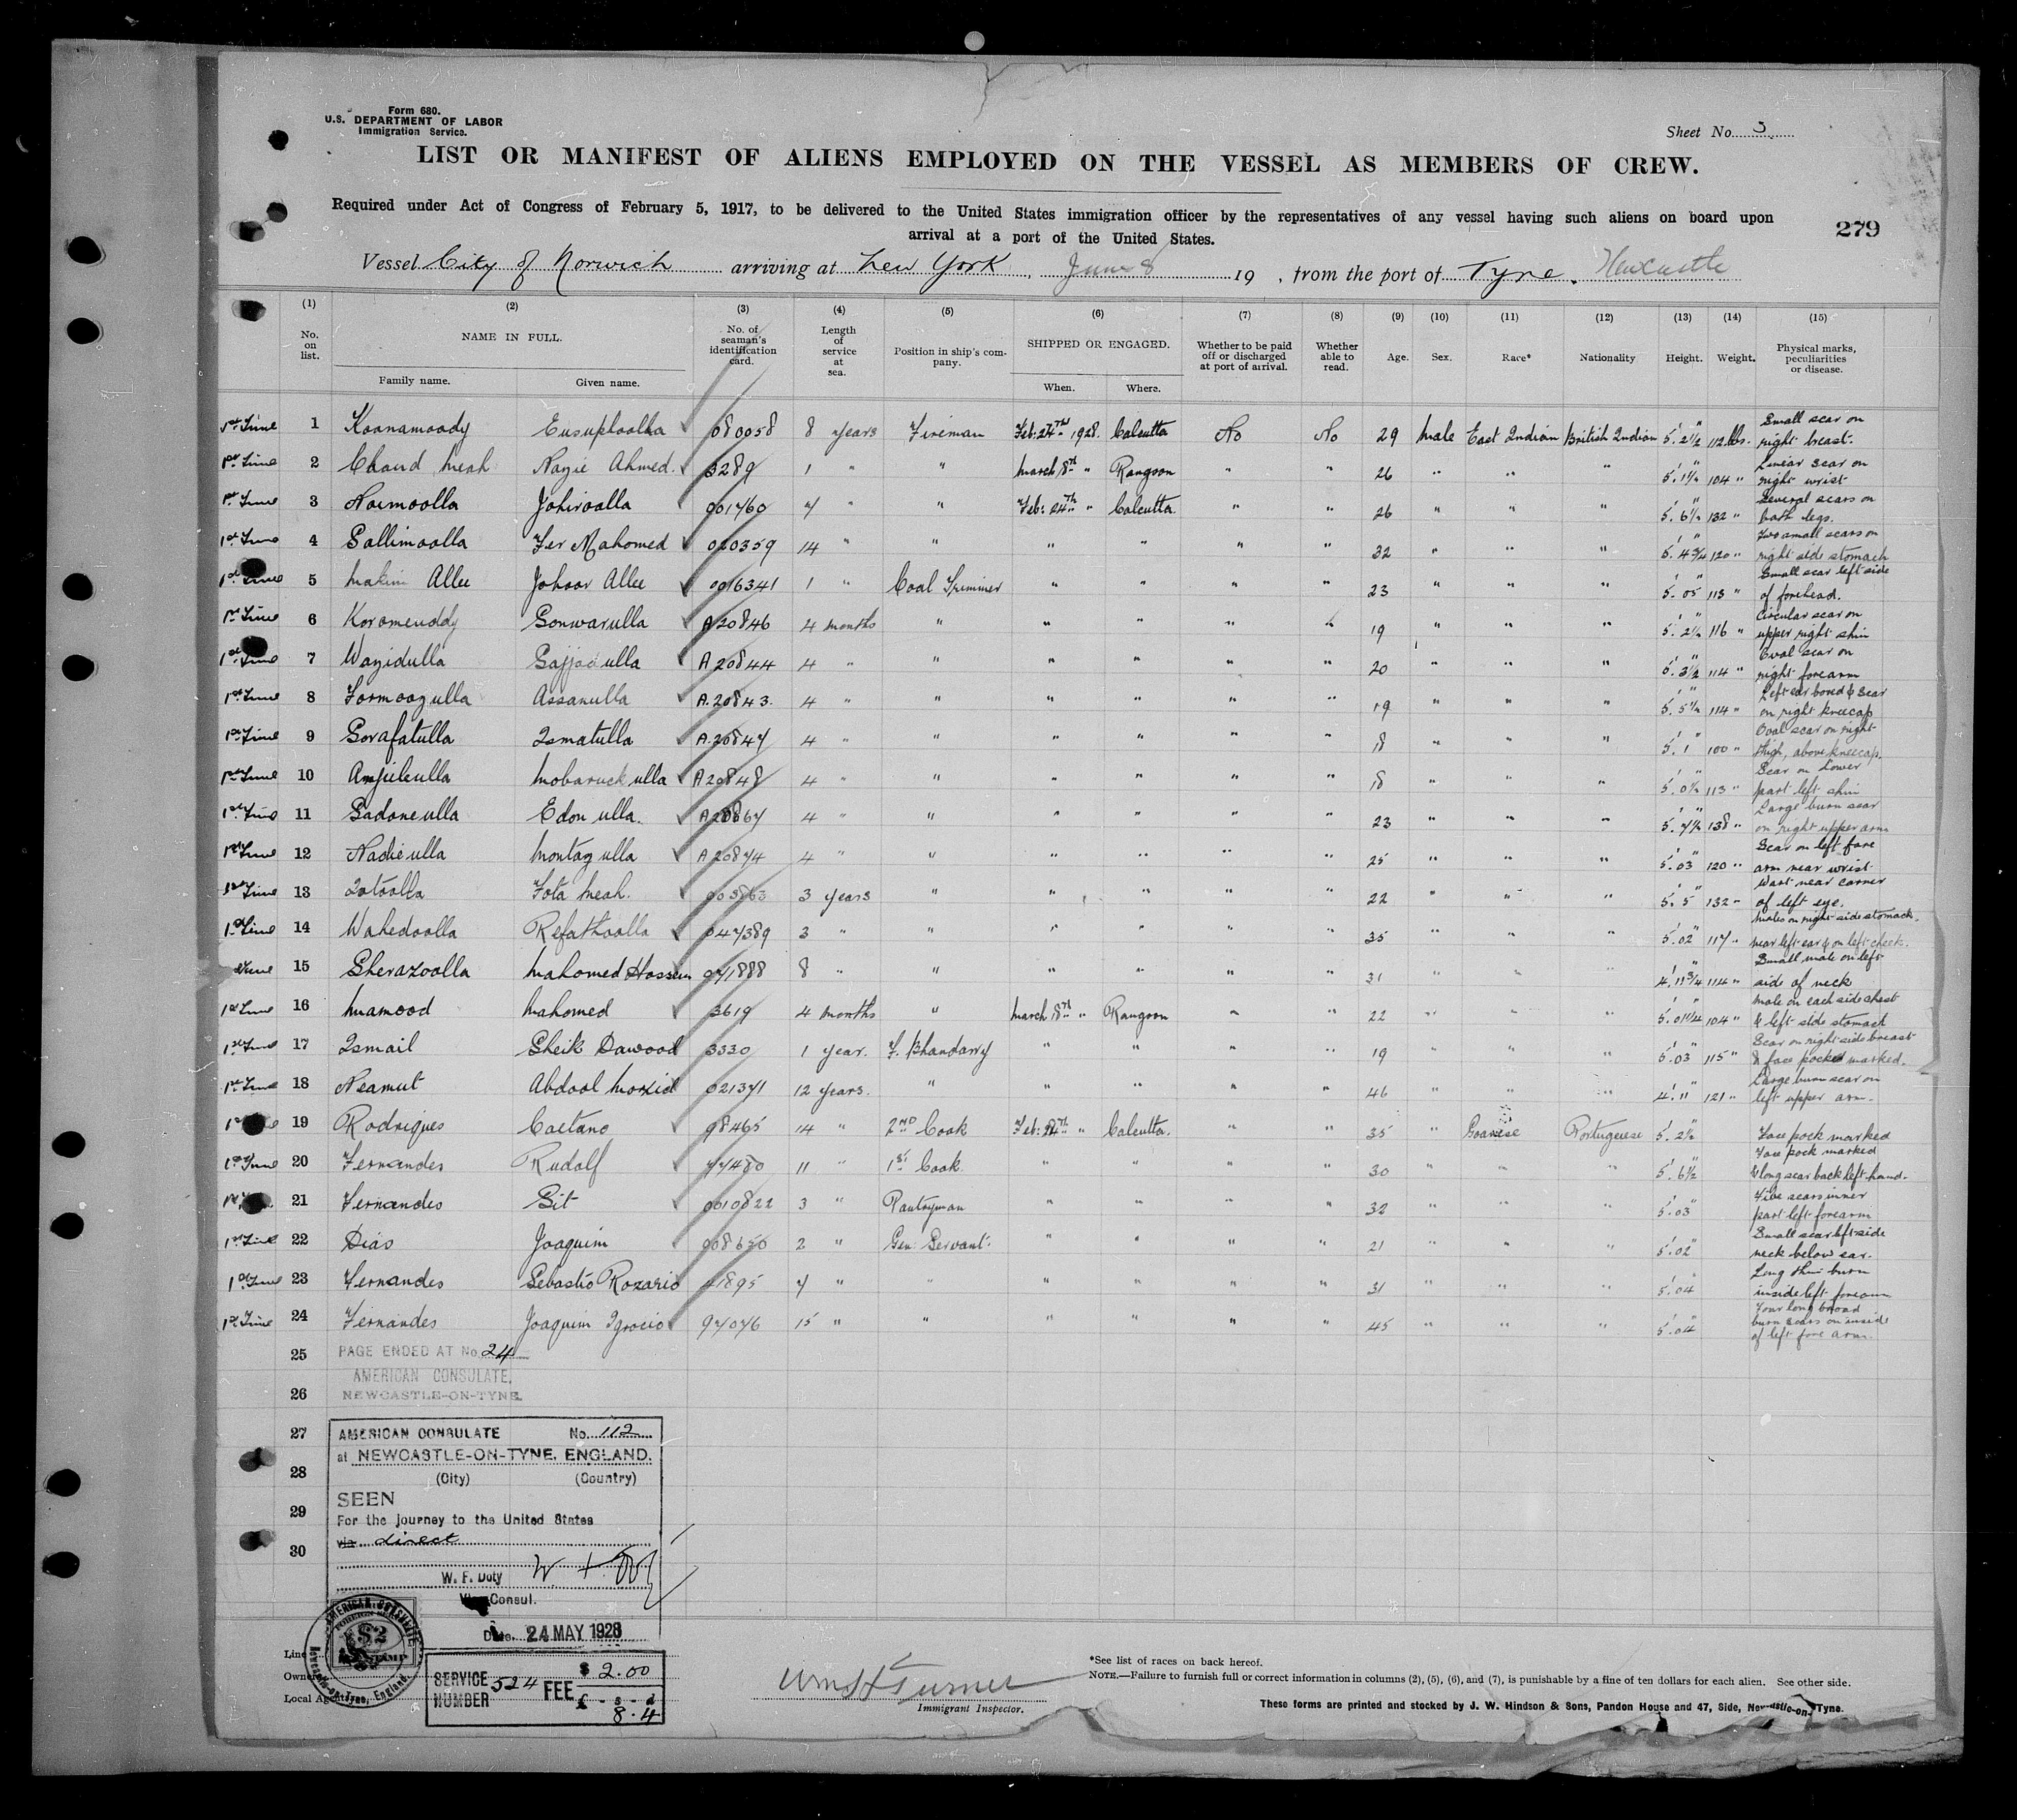 Form 680.
U.S. DEPARTMENT OF LABOR
Immigration Service.
Sheet No. 3
LIST OR MANIFEST OF ALIENS EMPLOYED ON THE VESSEL AS MEMBERS OF CREW.
Required under Act of Congress of February 5, 1917, to be delivered to the United States immigration officer by the representatives of any vessel having such aliens on board upon
arrival at a port of the United States.
279
Vessel City of Norwich arriving at New York, June 8 19 , from the port of Tyne. Newcastle
(1) (2) (3) (4) (5) (6) (7) (8) (9) (10) (11) (12) (13) (14) (15)
No. on list. NAME IN FULL. No. of seaman's identification card. Length of service at sea. Position in ship's company. SHIPPED OR ENGAGED. Whether to be paid off or discharged at port of arrival. Whether able to read. Age. Sex. Race* Nationality Height. Weight. Physical marks, peculiarities or disease.
Family name. Given name. When. Where.
1st Time 1 Koonamoody Eusuploolla 080058 8 years Fireman Feb: 24th 1928. Calcutta No No 29 Male East Indian British Indian 5' 2½" 112 lbs. Small scar on right breast.
1st Time 2 Chand Meah Nazie Ahmed. 3289 1 " " March 18th " Rangoon " " 26 " " " 5' 1½" 104 " Linear scar on right wrist
1st Time 3 Noimoolla Johiroolla 001760 7 " " Feb: 24th " Calcutta. " " 26 " " " 5' 6½" 132 " Several scars on both legs.
1st Time 4 Sollimoolla Fer Mahomed 020359 14 " " " " " " 32 " " " 5' 4¾" 120 " Two small scars on right side stomach
1st Time 5 Makim Allee Johoor Allee 0016341 1 " Coal Trimmer " " " " 23 " " " 5' 05" 113 " Small scar left side of forehead.
1st Time 6 Koromeuddy Sonwarulla A20846 4 months " " " " " 19 " " " 5' 2½" 116 " Circular scar on upper right shin
1st Time 7 Wazidulla Sajjadulla A 20844 4 " " " " " " 20 " " " 5' 3½" 114 " Oval scar on right forearm
1st Time 8 Formoozulla Assanulla A.20843. 4 " " " " " " 19 " " " 5' 5½" 114 " Left ear bored & scar on right kneecap
1st Time 9 Sorafatulla Ismatulla A.20847 4 " " " " " " 18 " " " 5' 1" 100 " Oval scar on right thigh, above kneecap.
1st Time 10 Amjieleulla Mobaruck ulla A20848 4 " " " " " " 18 " " " 5' 0½" 113 " Scar on lower part left shin
1st Time 11 Sadoneulla Edon ulla. A20867 4 " " " " " " 23 " " " 5' 7½" 138 " Large burn scar on right upper arm
1st Time 12 Nadieulla Montaz ulla A 20874 4 " " " " " " 25 " " " 5' 03" 120 " Scar on left fore arm near wrist
1st Time 13 Iotoolla Tota Meah. 003863 3 years " " " " " 22 " " " 5' 5" 132 " Wart near corner of left eye.
1st Time 14 Wahedoolla Refathoolla 047389 3 " " " " " " 35 " " " 5' 02" 117 " Moles on right side stomach, near left ear & on left cheek.
Time 15 Sherazoolla Mahomed Hossein 071888 8 " " " " " " 31 " " " 4' 11¾" 114 " Small mole on left side of neck
1st Time 16 Mamood Mahomed 3619 4 months " March 18th " Rangoon " " 22 " " " 5' 01¼" 104 " Mole on each side chest & left side stomach
1st Time 17 Ismail Sheik Dawood 3330 1 year. F. Bhandarry " " " " 19 " " " 5' 03" 115 " Scar on right side breast & face pocked marked.
1st Time 18 Neamut Abdool Morid 021371 12 years. " " " " " 46 " " " 4' 11" 121 " Large burn scar on left upper arm.
19 Rodrigues Caetano 98465 14 " 2nd Cook Feb: 24th " Calcutta. " " 35 " Goanese Portuguese 5' 2½" Face pock marked
1st Time 20 Fernandes Rudolf 77480 11 " 1st Cook " " " " 30 " " " 5' 6½" Face pock marked & long scar back left hand.
21 Fernandes Sit 0010822 3 " Pantryman " " " " 32 " " " 5' 03" Five scars inner part left forearm
1st Time 22 Dias Joaquim 008650 2 " Gen: Servant. " " " " 21 " " " 5' 02" Small scar left side neck below ear.
1st Time 23 Fernandes Sebastio Rozario 41895 7 " " " " " " 31 " " " 5' 04" Long thin burn inside left forearm
1st Time 24 Fernandes Joaquim Ignocio 97076 15 " " " " " " 45 " " " 5' 04" Four long broad burn scars on inside of left fore arm.
25 PAGE ENDED AT No. 24
AMERICAN CONSULATE,
26 NEWCASTLE-ON-TYNE.
27 AMERICAN CONSULATE No. 112
at NEWCASTLE-ON-TYNE, ENGLAND.
28 (City) (Country)
SEEN
29 For the journey to the United States
via direct
30
W. F. Doty
Consul.
Date. 24 MAY 1928
AMERICAN CONSULATE
Newcastle-on-Tyne, England.
$2
Line
Owner
Local Agent
SERVICE NUMBER 524 FEE $ 2.00
£ - s - d
8.4
Wm H Turner
Immigrant Inspector.
*See list of races on back hereof.
NOTE.—Failure to furnish full or correct information in columns (2), (5), (6), and (7), is punishable by a fine of ten dollars for each alien. See other side.
These forms are printed and stocked by J. W. Hindson & Sons, Pandon House and 47, Side, Newcastle-on-Tyne.